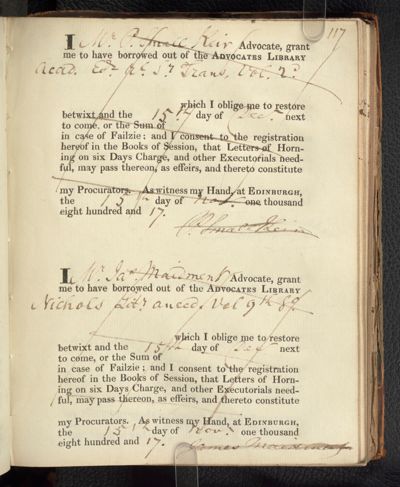 117
I Mr P. Small Keir Advocate, grant
me to have borrowed out of the ADVOCATES LIBRARY
Acad. Trans. Vol. 2d.
which I oblige me to restore
betwixt and the 15th day of Decr. next
to come, or the Sum of
in case of Failzie; and I consent to the registration
hereof in the Books of Session, that Letters of Horn-
ing on six Days Charge, and other Executorials need-
ful, may pass thereon, as effeirs, and thereto constitute
my Procurators. As witness my Hand, at EDINBURGH,
the 15th day of Novr. one thousand
eight hundred and 17.
P. Small Keir
I Mr Jas. Maidment Advocate, grant
me to have borrowed out of the ADVOCATES LIBRARY
Nichols Litr. anecd. Vol 9th 8o.
which I oblige me to restore
betwixt and the 15th day of Decr. next
to come, or the Sum of
in case of Failzie; and I consent to the registration
hereof in the Books of Session, that Letters of Horn-
ing on six Days Charge, and other Executorials need-
ful, may pass thereon, as effeirs, and thereto constitute
my Procurators. As witness my Hand, at EDINBURGH,
the 15th day of Novr. one thousand
eight hundred and 17. James Maidment